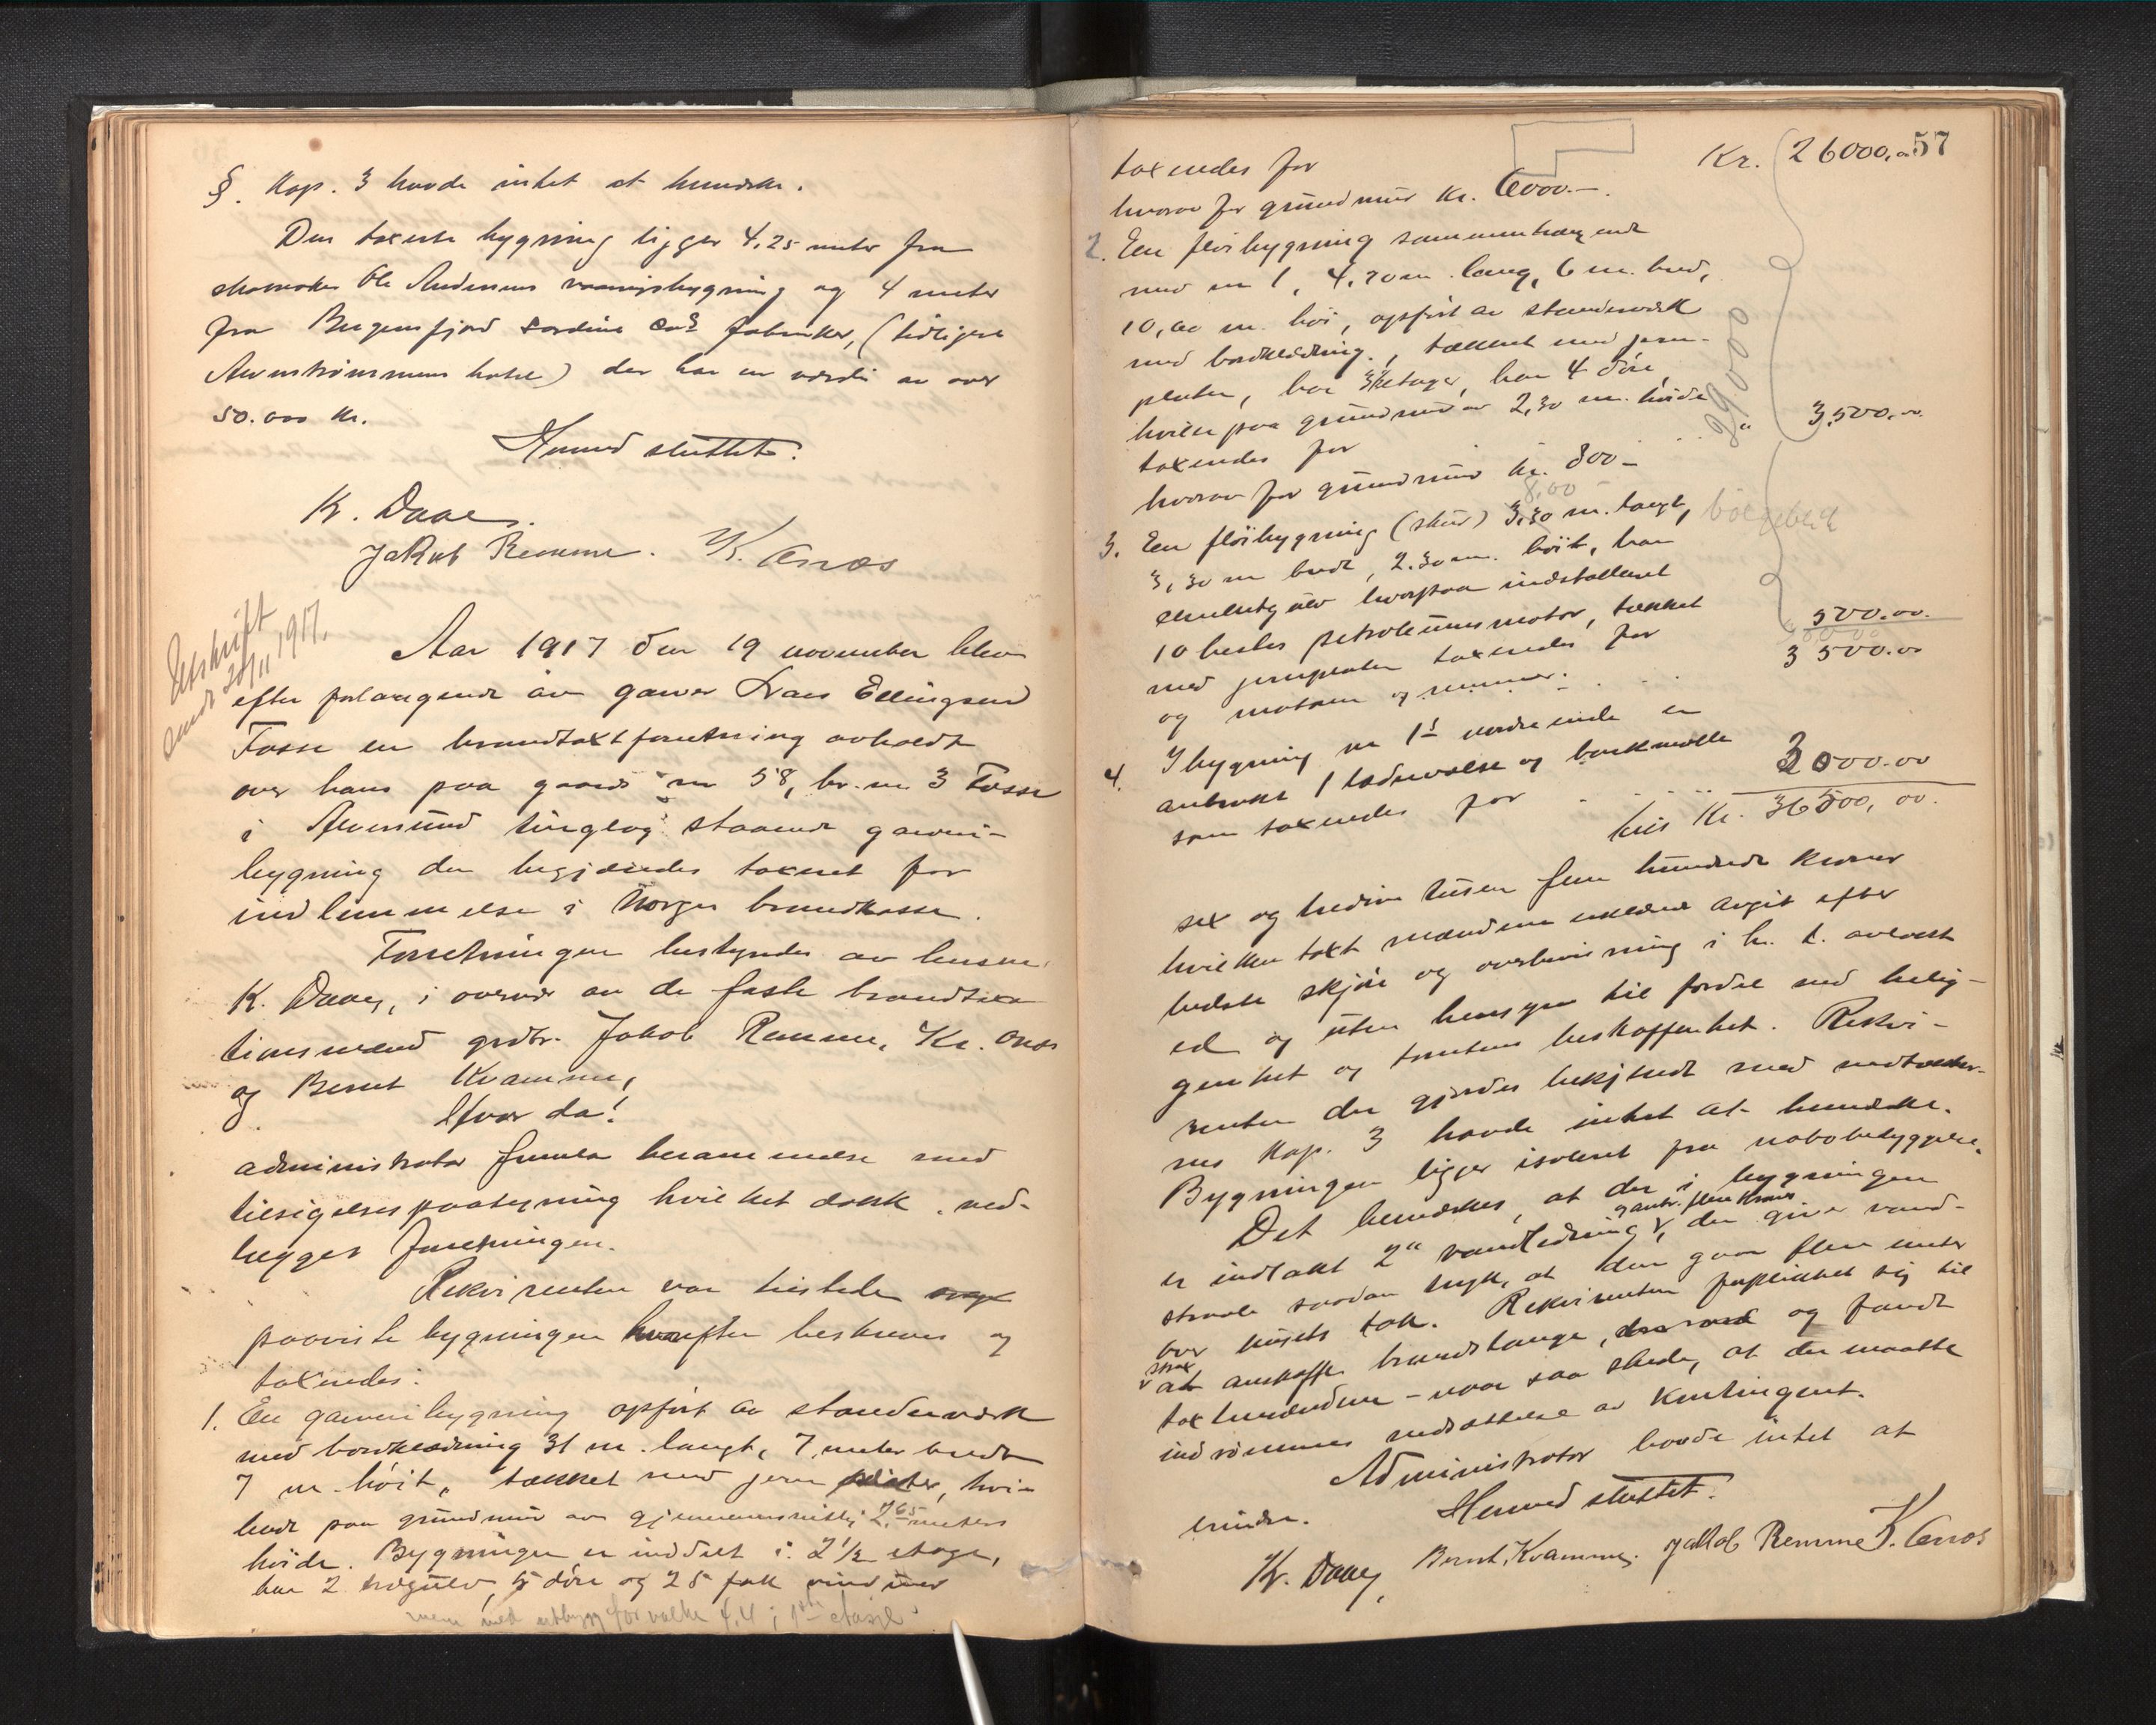 §. Kap. 3 havde intet at bemærke.
Den taxerte bygning ligger 4,25 meter fra
skomaker Ole Andersens vaaningsbygning og 4 meter
fra Bergensfjord sardine Co's fabrikker, (tidligere
Alverstrømmens hotel) der har en værdi av over
50.000 kr.
Hermed sluttet.
K. Daae
Jakob Remme. K. Onæs
Utskrift
sendt 20/11 1917.
Aar 1917 den 19 november blev
efter forlangende av garver Lars Ellingsen
Fosse en brandtaxtforretning avholdt
over hans paa gaards nr 58, br. nr 3 Fosse
i Alversund tinglag staaende garveri-
bygning der begjæredes taxeret for
indlemmelse i Norges brandkasse.
Forretningen bestyredes av lensm.
K. Daae, i overvær av de faste brandtaxa
tionsmænd grdbr. Jakob Remme, Kr. Onæs
og Bernt Kvamme,
Hvor da!
administrator fremla berammelse med
tilsigelsespaategning hvilket dokk. ved-
lægges forretningen.
Rekvirenten var tilstede
paaviste bygningen hvorefter beskrives og
taxeredes:
1. En garveribygning opført av stenderværk
med bordklædning 31 m. langt, 7 meter bredt
7 m. høit, tækket med jernplater, hvi-
lende paa grundmur av gjennemsnittlig 2,65 meters
høide. Bygningen er inddelt i 2 1/2 etage,
har 2 trægulv, 5 døre og 25 fak vinduer
i 1ste etasje
57
taxeredes for Kr. 26000,00
hvorav for grundmur kr. 6000.—.
2. En fløibygning sammenhængende
med nr 1, 4,70 m. lang, 6 m. bred,
10,00 m. høi, opført av stenderværk
med bordklædning, tækket med jern-
plater, har 3 etager, har 4 døre,
hviler paa grundmur av 2,30 m. høide
taxeredes for " 3,500.00.
hvorav for grundmur kr. 800—
29.000
8,00
3. En fløibygning (skur) 3,30 m. langt,
3,30 m bredt, 2.30 m. høit, har
sementgulv hvorpaa indstalleret
10 hestes petroleumsmotor, tækket
med jernplater taxeredes for 500.00.
og motoren og remmer. . . 3 500.00
4. I bygning nr 1s nordre ende er
anbrakt 1 lædervalse og barkmølle
som taxeredes for 3000.00
tils Kr. 36500,00.
sex og tredive tusen fem hundrede kroner
hvilken taxt mændene erklærte avgit efter
bedste skjøn og overbevisning i h. t. avlagt
ed og uten hensyn til fordel ved belig-
genhet og tomtens beskaffenhet. Rekvi-
renten der gjordes bekjendt med vedtækter-
nes Kap. 3 havde intet at bemærke.
Bygningen ligger isoleret fra nabobebyggelse.
Det bemærkes, at der i bygningen
er indlakt 2" vandledning og anbr. flere kraner, der giver vand-
straale saadan tryk, at den gaar flere meter
over husets tak. Rekvirenten forpliktet sig til
strax at anskaffe brandslange, og fandt
taxtmændene — naar saa skede, at der maatte
indrømmes nedsættelse av kontingent.
Administrator havde intet at
erindre.
Hermed sluttet.
Kr. Daae, Bernt Kvamme. Jakob Remme K. Onæs